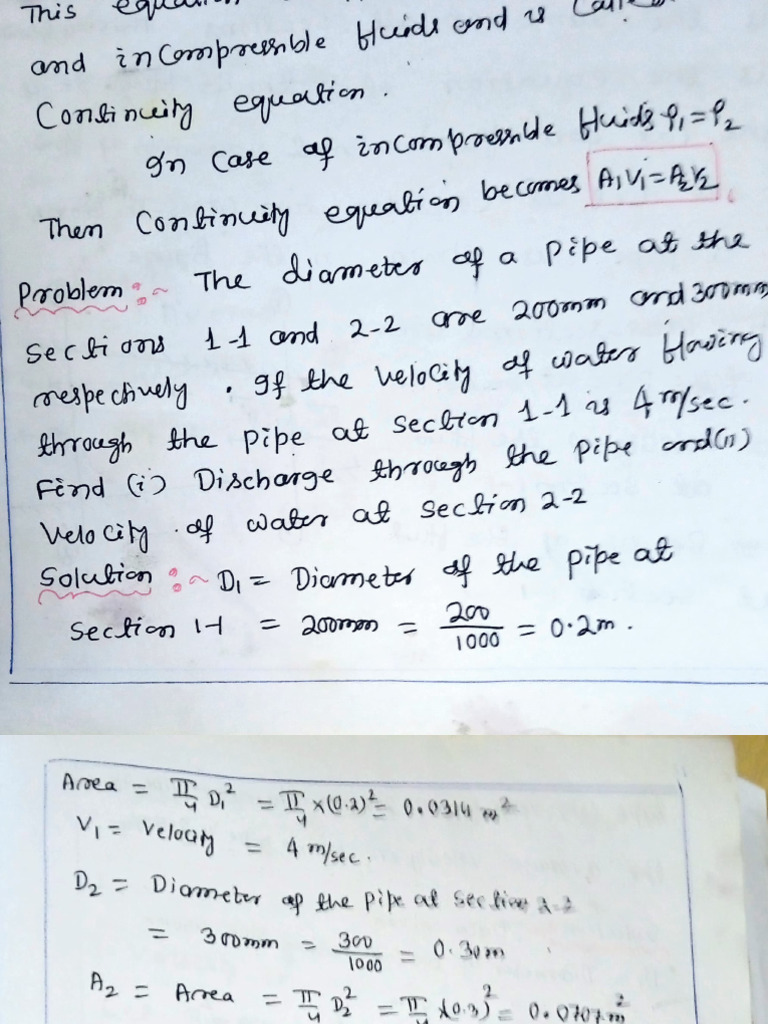 This equation
and incompressible fluids and is Called
Continuity equation.
In case of incompressible fluids ρ₁=ρ₂
Then Continuity equation becomes A₁V₁=A₂V₂.
Problem:~ The diameter of a pipe at the
sections 1-1 and 2-2 are 200mm and 300mm
respectively. If the velocity of water flowing
through the pipe at section 1-1 is 4m/sec.
Find (i) Discharge through the pipe and (ii)
Velocity of water at section 2-2
Solution:~ D₁ = Diameter of the pipe at
section 1-1 = 200mm = 200/1000 = 0.2m.
Area = π/4 D₁² = π/4 ×(0.2)² = 0.0314 m²
V₁ = Velocity = 4 m/sec.
D₂ = Diameter of the pipe at section 2-2
= 300mm = 300/1000 = 0.30m
A₂ = Area = π/4 D₂² = π/4 ×(0.3)² = 0.0707m²